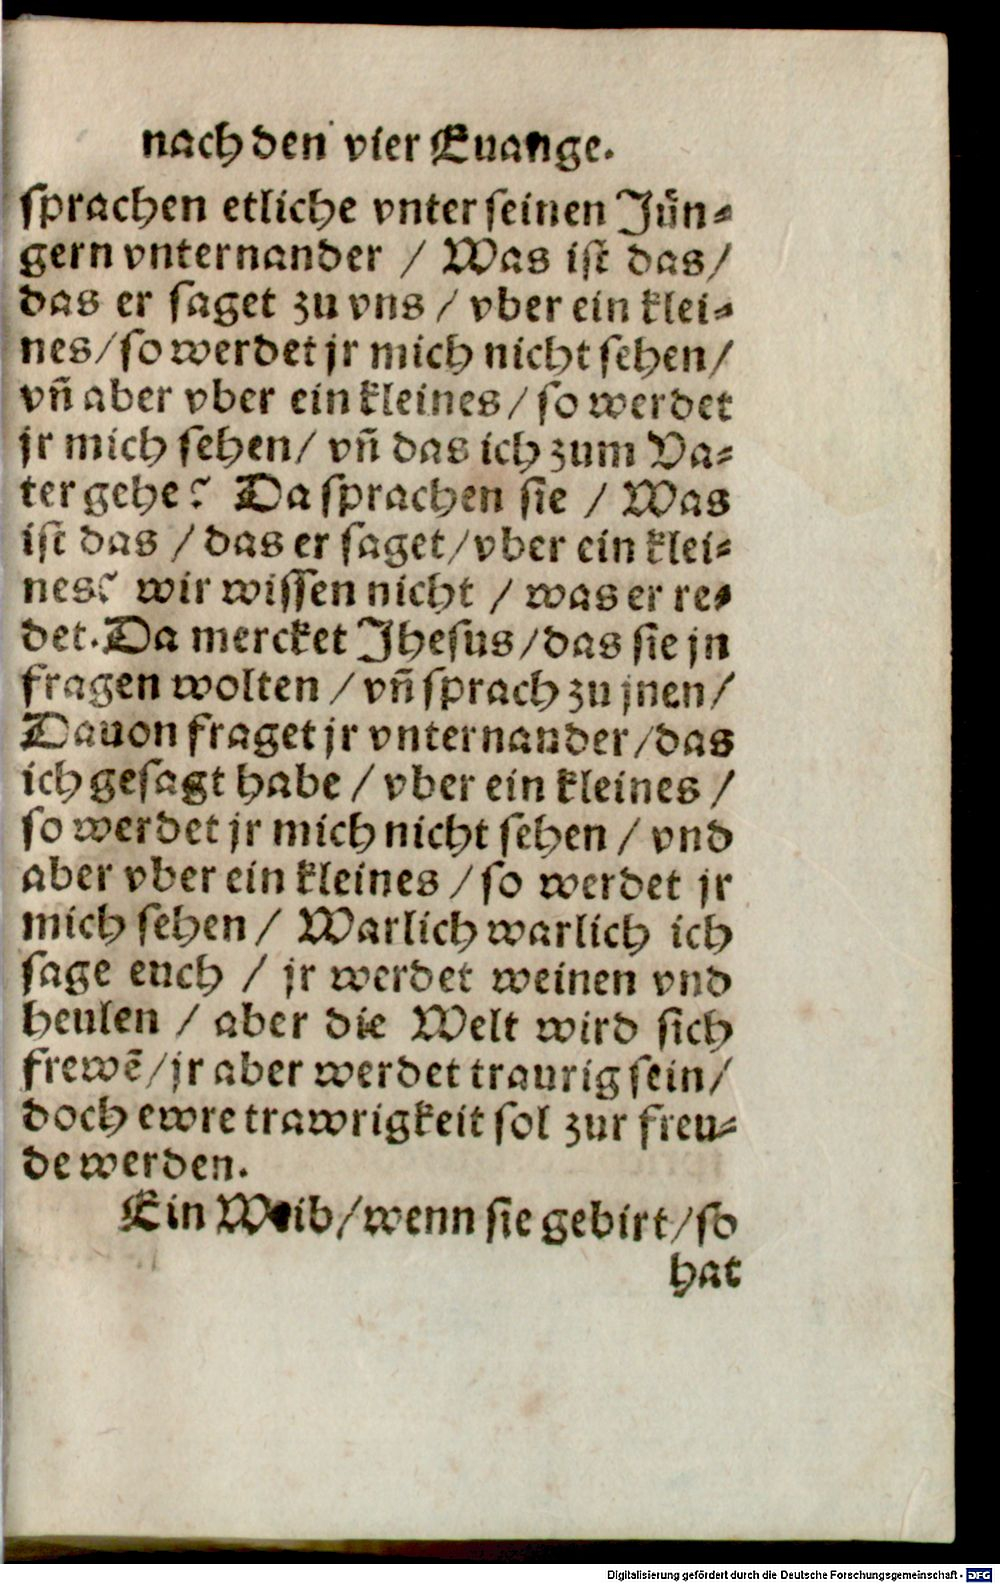 nach den vier Euange.
sprachen etliche vnter seinen Jün⸗
gern vnternander / Was ist das/
das er saget zu vns / vber ein klei⸗
nes/ so werdet jr mich nicht sehen/
vñ aber vber ein kleines / so werdet
jr mich sehen/ vñ das ich zum Va⸗
ter gehe? Da sprachen sie / Was
ist das / das er saget/ vber ein klei⸗
nes? wir wissen nicht / was er re⸗
det. Da mercket Jhesus/ das sie jn
fragen wolten / vñ sprach zu jnen/
Dauon fraget jr vnternander/ das
ich gesagt habe / vber ein kleines /
so werdet jr mich nicht sehen / vnd
aber vber ein kleines / so werdet jr
mich sehen / Warlich warlich ich
sage euch / jr werdet weinen vnd
heulen / aber die Welt wird sich
frewē/ jr aber werdet traurig sein/
doch ewre trawrigkeit sol zur freu⸗
de werden.
Ein Weib/ wenn sie gebirt/ so
hat
Digitalisierung gefördert durch die Deutsche Forschungsgemeinschaft - DFG